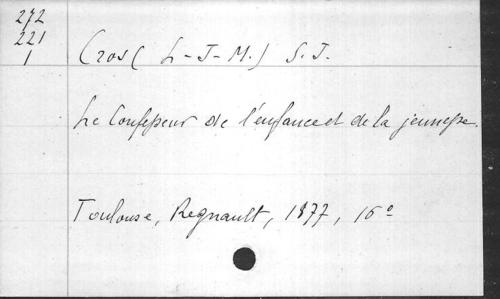 272
221
1
Cros (L-J-M.) S.J.
Le Confesseur de l'enfance et de la jeunesse.
Toulouse, Regnault, 1877, 16º